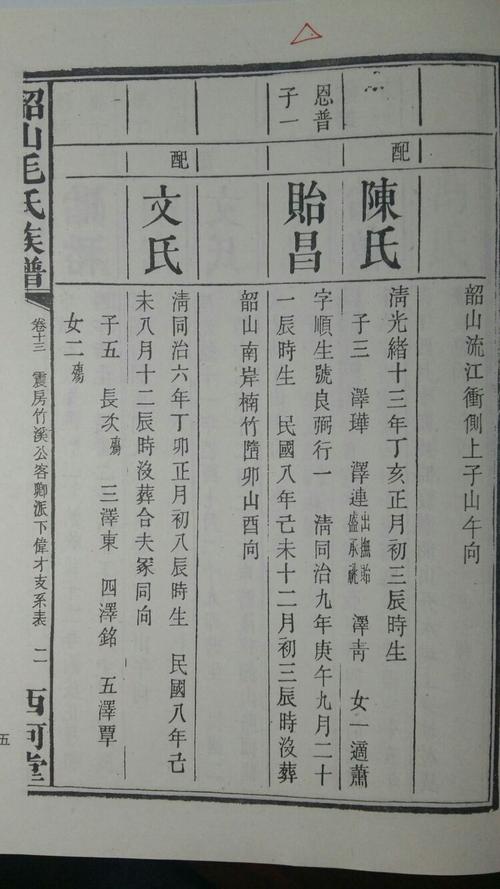 韶山流江衝側上子山午向
配
陳氏
淸光緒十三年丁亥正月初三辰時生
子三 澤璍 澤連出撫貽盛承祧 澤靑 女一適蕭
恩普
子一
貽昌
字順生號良弼行一 淸同治九年庚午九月二十
一辰時生 民國八年己未十二月初三辰時沒葬
韶山南岸楠竹𡐓卯山酉向
配
文氏
淸同治六年丁卯正月初八辰時生 民國八年己
未八月十二辰時沒葬合夫冢同向
子五 長次殤 三澤東 四澤銘 五澤覃
女二殤
韶山毛氏族譜
卷十三 震房竹溪公客卿派下偉才支系表 二
西河堂
五